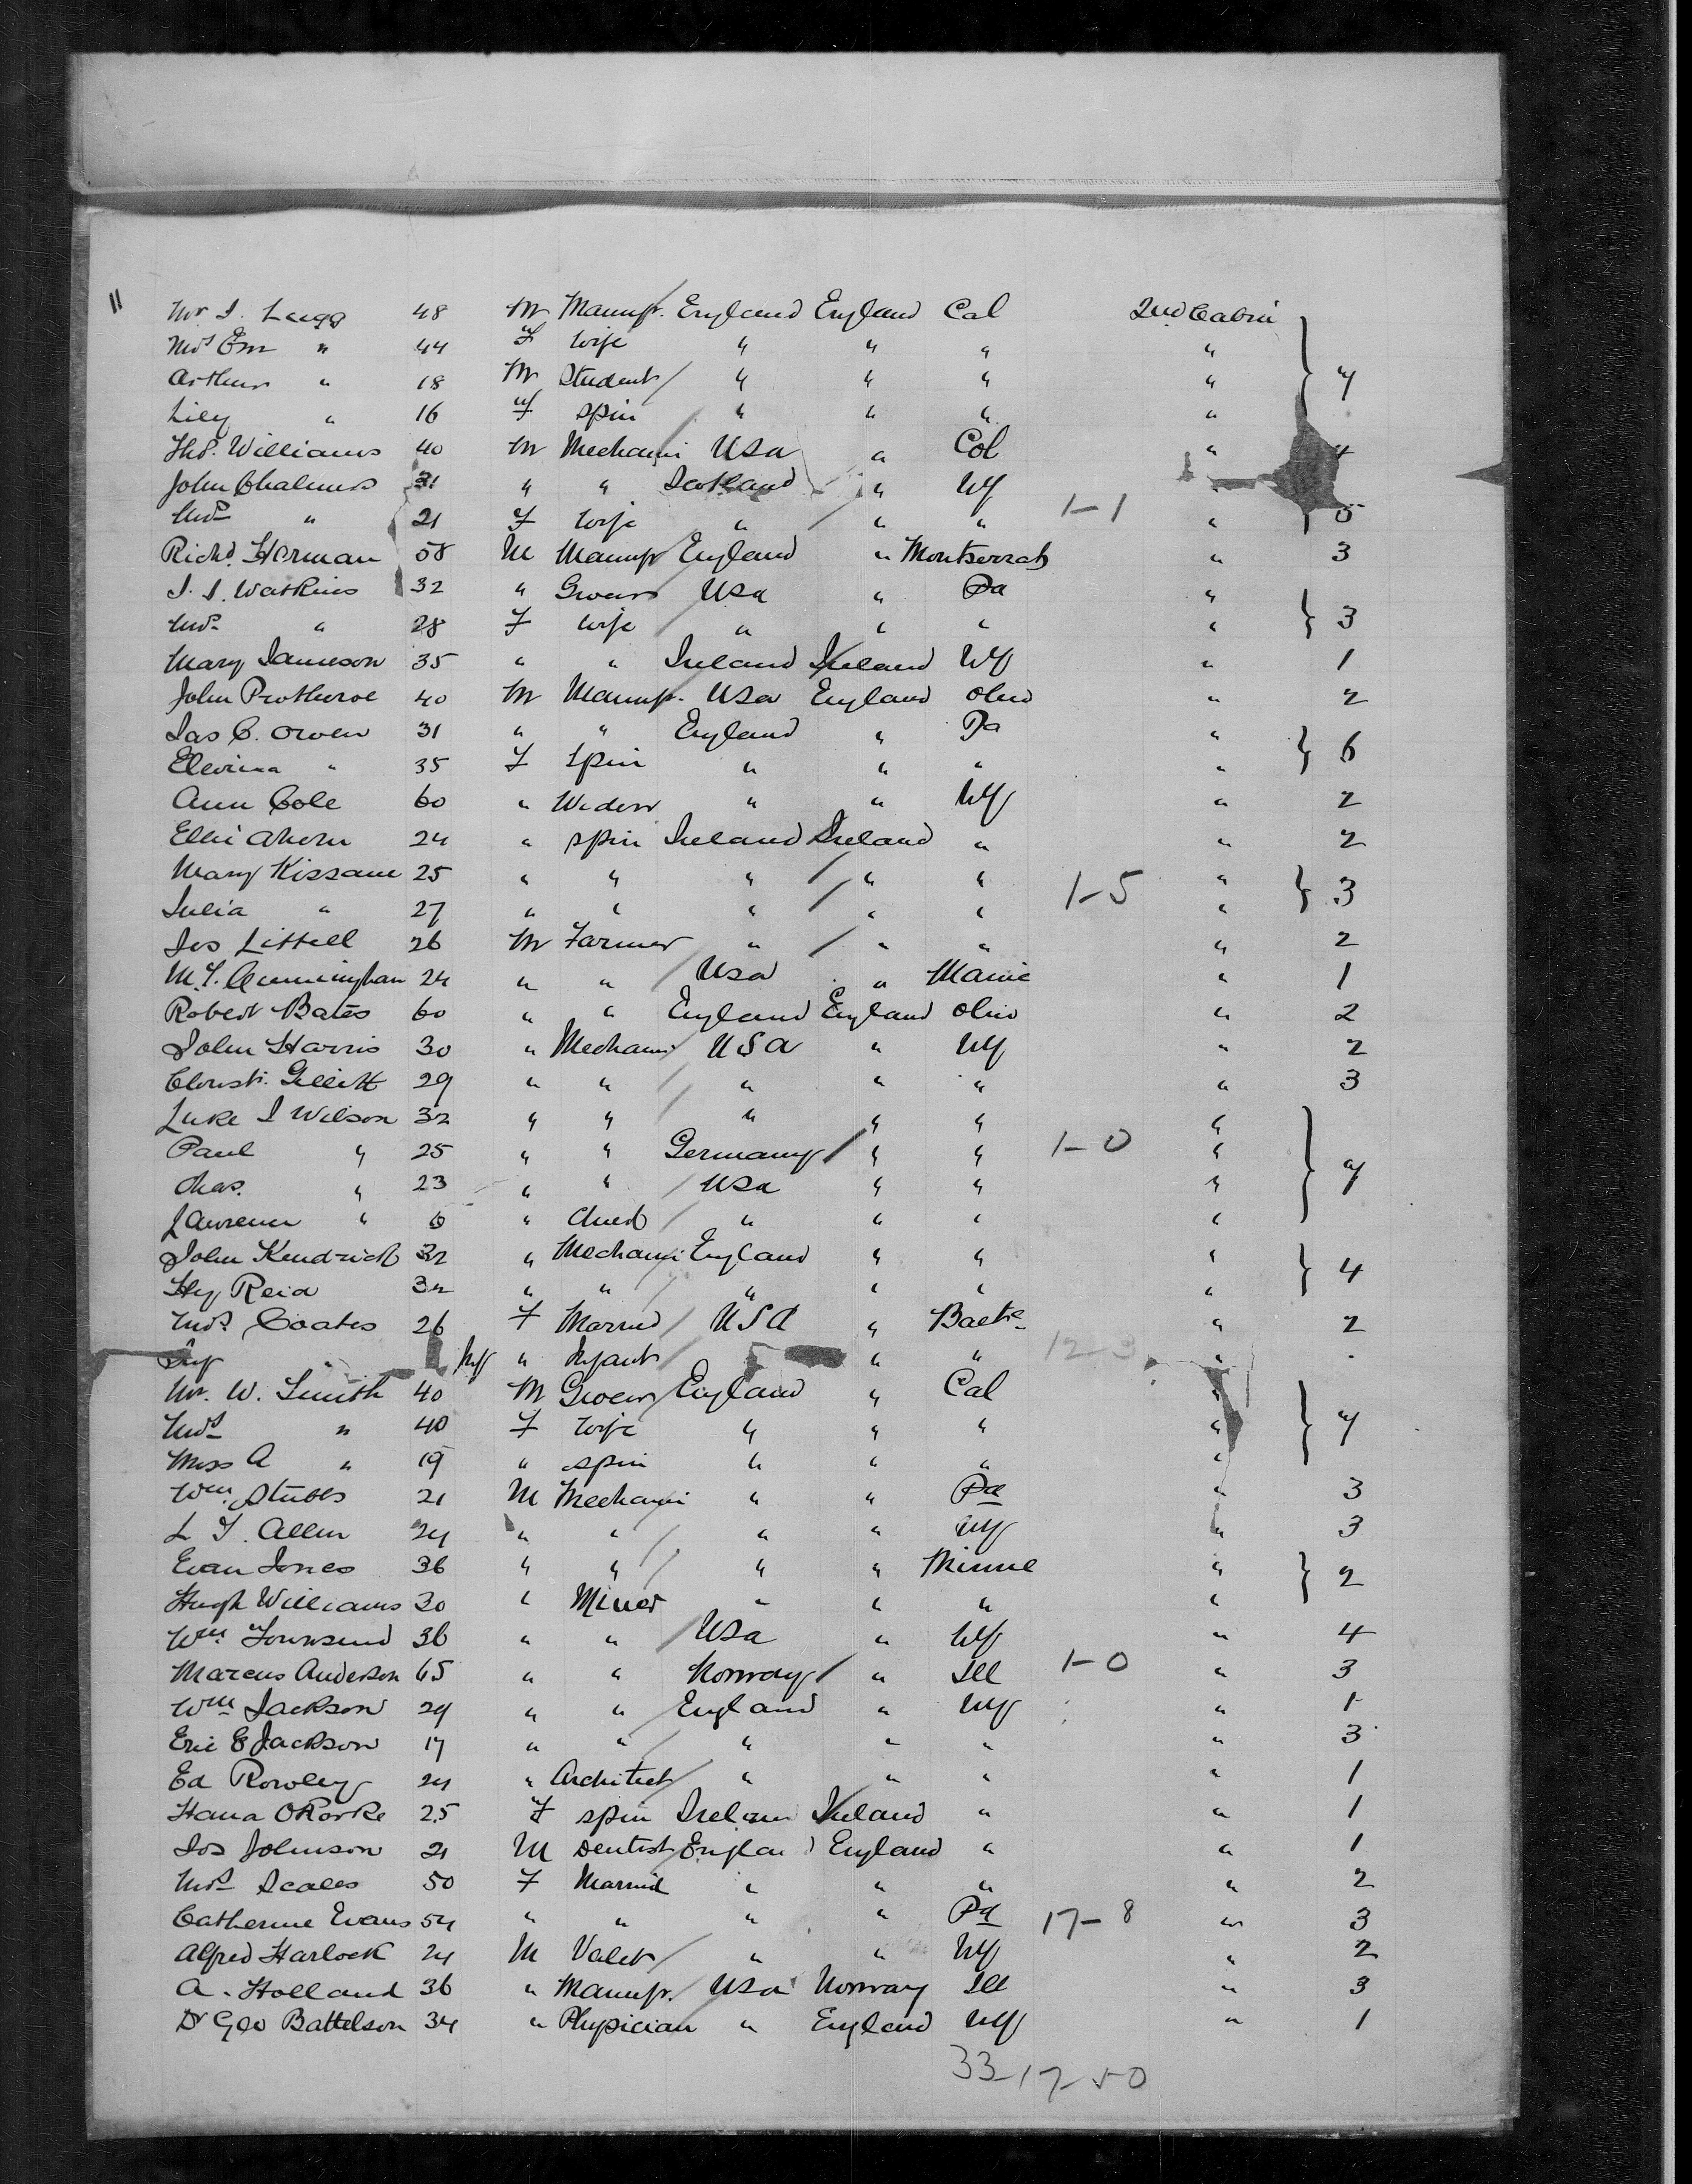 11
Mr J. Legg 48 M Manufr. England England Cal 2nd Cabin
Mrs Em " 44 F wife " " " "
Arthur " 18 M Student " " " " } 7
Lily " 16 F spin " " " "
Thos. Williams 40 M Mechani USA " Col "
John Chalmers 31 " " Scotland " NY "
Mrs " 21 F wife " " " 1-1 " } 5
Richd. Horman 58 M Manufr England " Montserrat " 3
J. J. Watkins 32 " Grocer USA " Pa "
Mrs " 28 F wife " " " " } 3
Mary Jameson 35 " " Ireland Ireland NY " 1
John Protheroe 40 M Manufr. USA England Ohio " 2
Jas C. Owen 31 " " England " Pa "
Elevina " 35 F Spin " " " " } 6
Ann Cole 60 " Widow " " NY " 2
Ellie Ahern 24 " spin Ireland Ireland " " 2
Mary Kissane 25 " " " " " 1-5 " } 3
Julia " 27 " " " " " "
Jos Littell 26 M Farmer " " " " 2
M. T. Cunningham 24 " " USA " Maine " 1
Robert Bates 60 " " England England Ohio " 2
John Harris 30 " Mechani USA " NY " 2
Christ. Gillitt 29 " " " " " " 3
Luke J Wilson 32 " " " " " "
Paul " 25 " " Germany " " 1-0 " } 7
Chas. " 23 " " USA " " "
Lawrence " 6 " Child " " " "
John Kendrick 32 " Mechani England " " " } 4
Hy Reid 32 " " " " " "
Mrs Coates 26 F Married USA " Balte " 2
Inf " " Infant " " 12-3 "
Mr. W. Smith 40 M Grocer England " Cal "
Mrs " 40 F wife " " " " } 7
Miss A " 19 " spin " " " "
Wm. Stubbs 21 M Mechani " " Pa " 3
L T. Allen 24 " " " " NY " 3
Evan Jones 36 " " " " Minne " } 2
Hugh Williams 30 " Miner " " " "
Wm. Townsend 36 " " USA " NY " 4
Marcus Anderson 65 " " Norway " Ill 1-0 " 3
Wm Jackson 29 " " England " NY " 1
Eric E Jackson 17 " " " " " " 3
Ed Rowley 24 " Architect " " " " 1
Hana O'Rorke 25 F spin Ireland Ireland " " 1
Jos Johnson 21 M Dentist England England " " 1
Mrs Scales 50 F Married " " " " 2
Catherine Evans 54 " " " " Pa 17-8 " 3
Alfred Harlock 24 M Valet " " NY " 2
A. Holland 36 " Manufr. USA Norway Ill " 3
Dr Geo Battelson 34 " Physician " England NY " 1
33-17-50